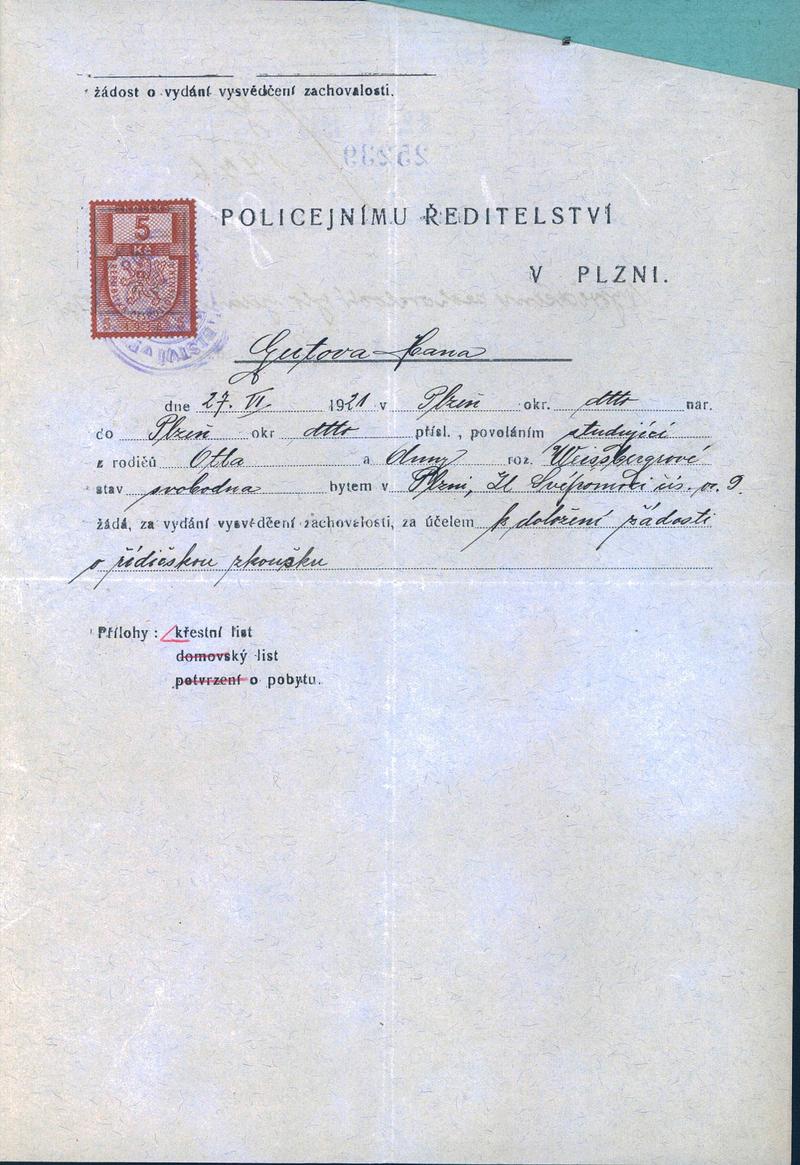 žádost o vydání vysvědčení zachovalosti.
25239
5
Kč
POLICEJNÍMU ŘEDITELSTVÍ
V PLZNI.
Gutova Hana
dne 27. VI 1921 v Plzeň okr. dtto nar.
do Plzeň okr dtto přísl., povoláním studující
z rodičů Otta a Anny roz. Weissbergrové
stav svobodna bytem v Plzni, Ul Svépomoci čís. 9.
žádá, za vydání vysvědčení zachovalosti, za účelem k doložení žádosti
o řidičskou zkoušku
Přílohy: křestní list
domovský list
potvrzení o pobytu.